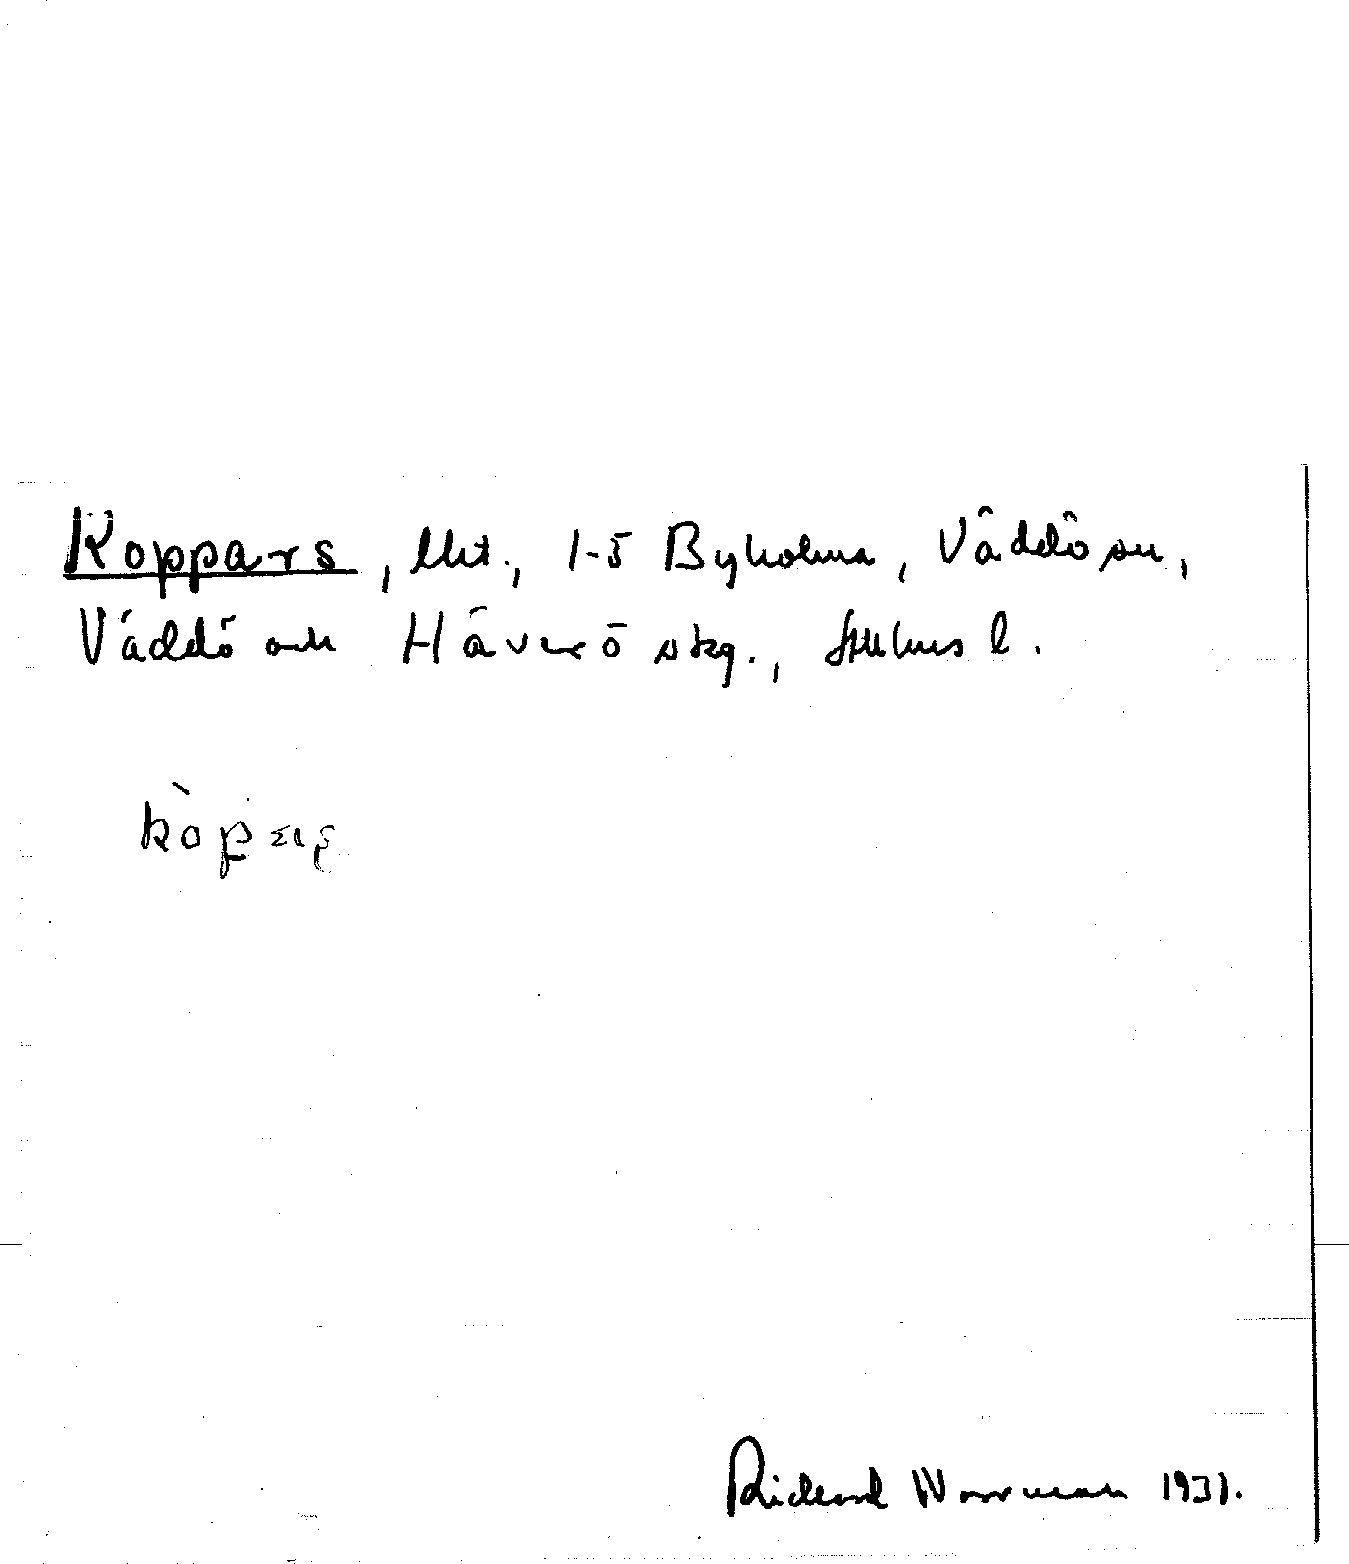 Koppars, lht., 1-5 Byholma, Väddö sn,
Väddö och Häverö skg., Sthlms l.
Rickard Wossman 1931.